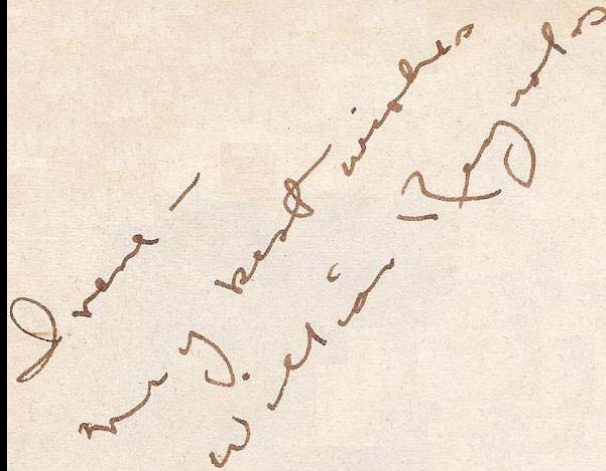 Irene –
my best wishes
William Reynolds